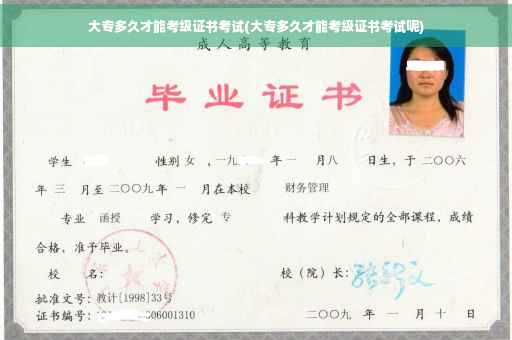 大专多久才能考级证书考试(大专多久才能考级证书考试呢)
成人高等教育
毕业证书
学生 性别 女 ，一九 年 一 月八 日生，于 二〇〇六
年 三 月至 二〇〇九 年 一 月在本校 财务管理
专业 函授 学习，修完 专 科教学计划规定的全部课程，成绩
合格，准予毕业。
校 名： 校（院）长：
批准文号：教计[1998]33号
证书编号： 06001310 二〇〇九 年 一 月 十 日